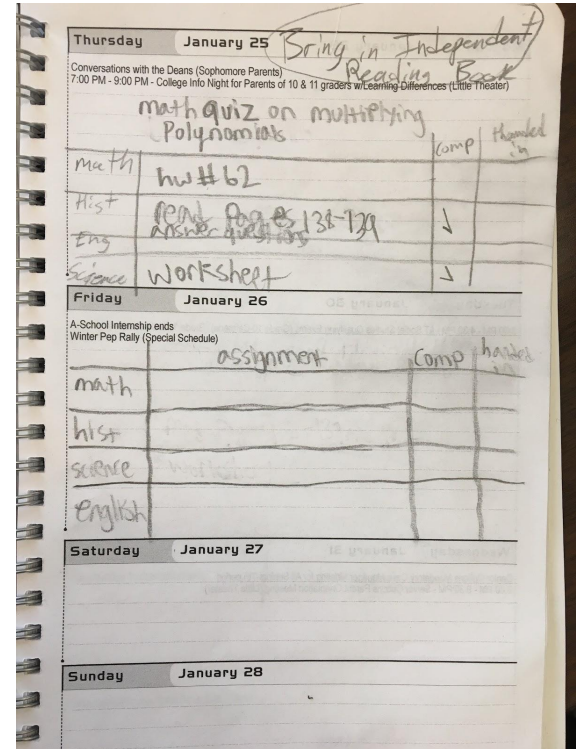 Thursday January 25 Bring in Independent
Reading Book
Conversations with the Deans (Sophomore Parents)
7:00 PM - 9:00 PM - College Info Night for Parents of 10 & 11 graders w/Learning Differences (Little Theater)
math quiz on multiplying
Polynomials
comp handed in
math hw#62
Hist read Pages 138-139
answer questions ✓
Eng
Science worksheet ✓
Friday January 26
A-School Internship ends
Winter Pep Rally (Special Schedule)
assignment comp handed in
math
hist
science
english
Saturday January 27
Sunday January 28